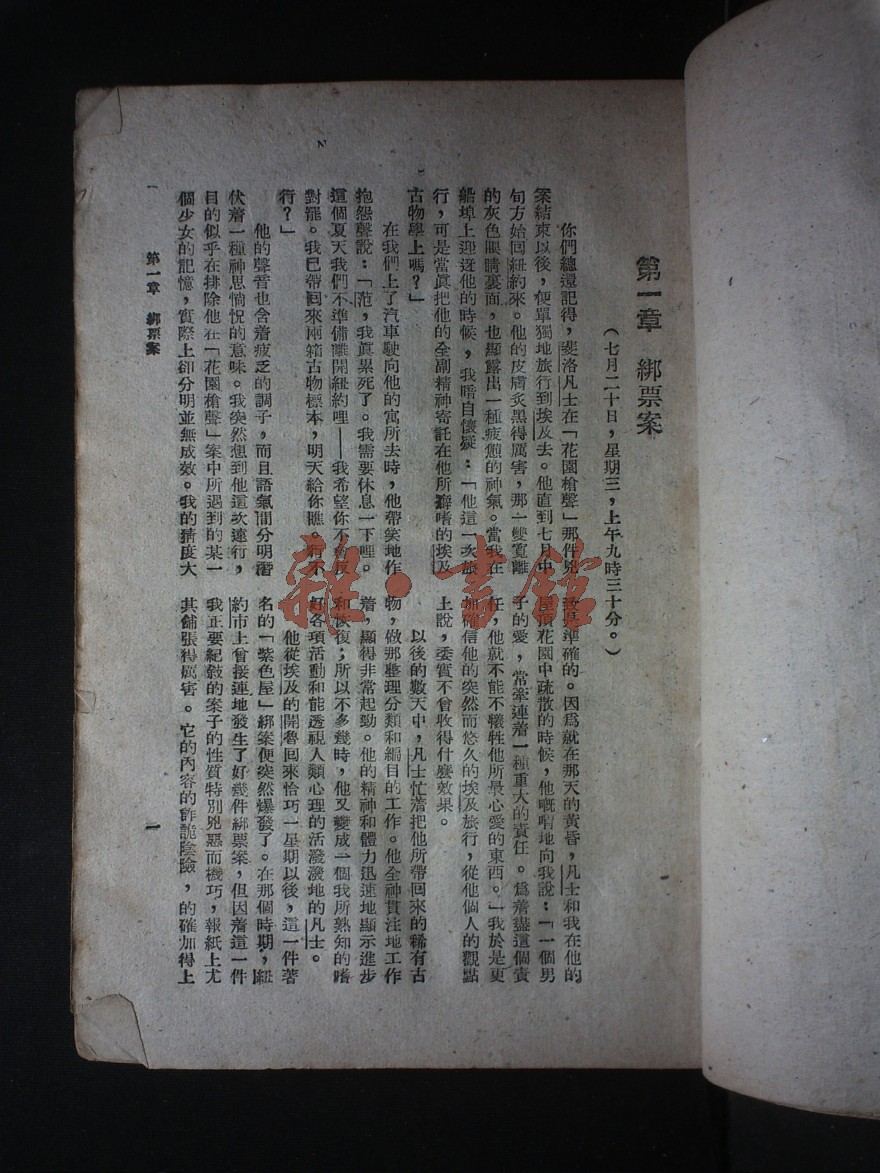 第一章　綁票案
（七月二十日，星期三，上午九時三十分。）
你們總還記得，斐洛凡士在「花園槍聲」那件兇
案結束以後，便單獨地旅行到埃及去。他直到七月中
旬方始回紐約來。他的皮膚炙黑得厲害，那一雙寬離
的灰色眼睛裏面，也顯露出一種疲憊的神氣。當我在
船埠上迎迓他的時候，我暗自懷疑：「他這一次旅
行，可是當眞把他的全副精神寄託在他所癖嗜的埃及
古物學上嗎？」
在我們上了汽車駛向他的寓所去時，他帶笑地作
抱怨聲說：「范，我眞累死了。我需要休息一下哩。
這個夏天我們不準備離開紐約哩——我希望你不會反
對罷。我已帶回來兩箱古物標本，明天給你瞧。行不
行？」
他的聲音也含着疲乏的調子，而且語氣間分明潛
伏着一種神思惝怳的意味。我突然想到他這次遠行，
目的似乎在排除他在「花園槍聲」案中所遇到的某一
個少女的記憶，實際上卻分明並無成效。我的猜度大
致是準確的。因爲就在那天的黃昏，凡士和我在他的
屋頂花園中疏散的時候，他嘅喟地向我說：「一個男
子的愛，常牽連着一種重大的責任。爲着盡這個責
任，他就不能不犧牲他所最心愛的東西。」我於是更
加確信他的突然而悠久的埃及旅行，從他個人的觀點
上說，委實不曾收得什麼效果。
以後的數天中，凡士忙着把他所帶回來的稀有古
物，做那整理分類和編目的工作。他全神貫注地工作
着，顯得非常起勁。他的精神和體力迅速地顯示進步
和恢復；所以不多幾時，他又變成一個我所熟知的嗜
好各項活動和能透視人類心理的活潑潑地的凡士。
他從埃及的開魯回來恰巧一星期以後，這一件著
名的「紫色屋」綁案便突然爆發了。在那個時期，紐
約市上曾接連地發生了好幾件綁票案，但因着這一件
我正要紀敍的案子的性質特別兇惡而機巧，報紙上尤
其舖張得厲害。它的內容的詐詭陰險，的確加得上
第一章　綁票案
一
雜·書館